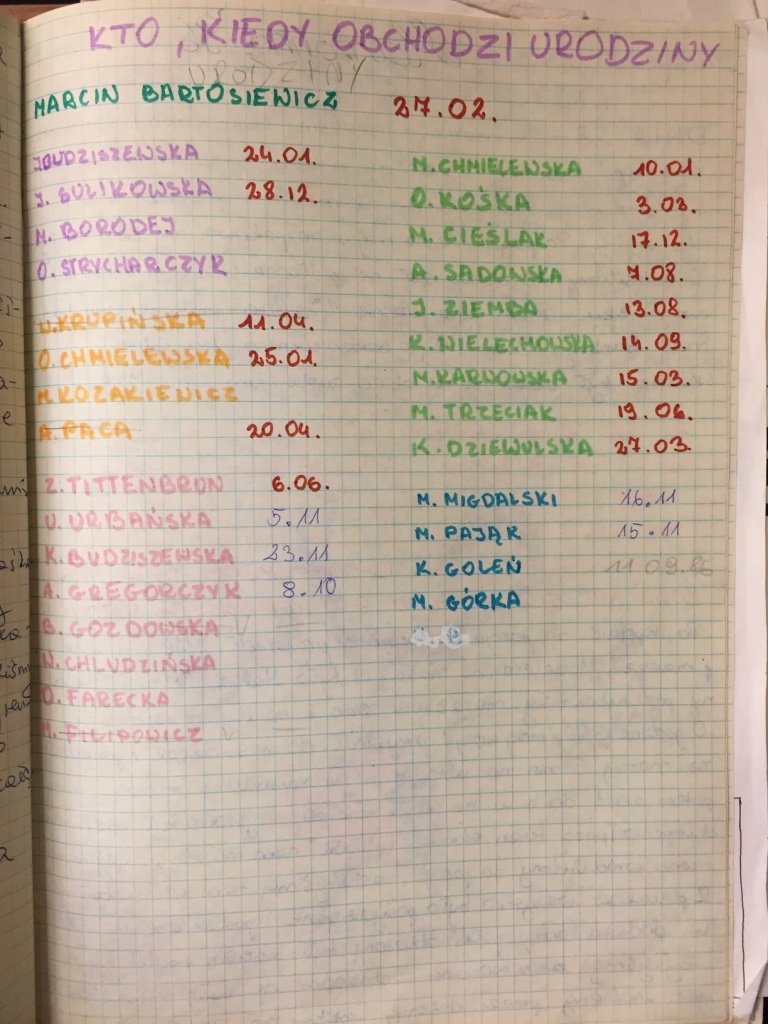 KTO, KIEDY OBCHODZI URODZINY
URODZINY
MARCIN BARTOSIEWICZ 27.02.
J.BUDZISZEWSKA 24.01.
J. GULIKOWSKA 28.12.
M. BORODEJ
O. STRYCHARCZYK
U.KRUPIŃSKA 11.04.
O.CHMIELEWSKA 25.01.
M.KOZAKIEWICZ
A.PACA 20.04.
Z.TITTENBRUN 6.06.
U. URBAŃSKA 5.11
K.BUDZISZEWSKA 23.11
A. GREGORCZYK 8.10
B. GOZDOWSKA
N.CHLUDZIŃSKA
D.FARECKA
M.FILIPOWICZ
M.CHMIELEWSKA 10.01.
O.KOŚKA 3.08.
M. CIEŚLAK 17.12.
A.SADOWSKA 7.08.
J. ZIEMBA 13.08.
K.WIELECHOWSKA 14.09.
M.KARNOWSKA 15.03.
M. TRZECIAK 19.06.
K.DZIEWULSKA 27.03.
M. MIGDALSKI 16.11
M. PAJĄK 15.11
K. GOLEŃ 11.09.86
M. GÓRKA